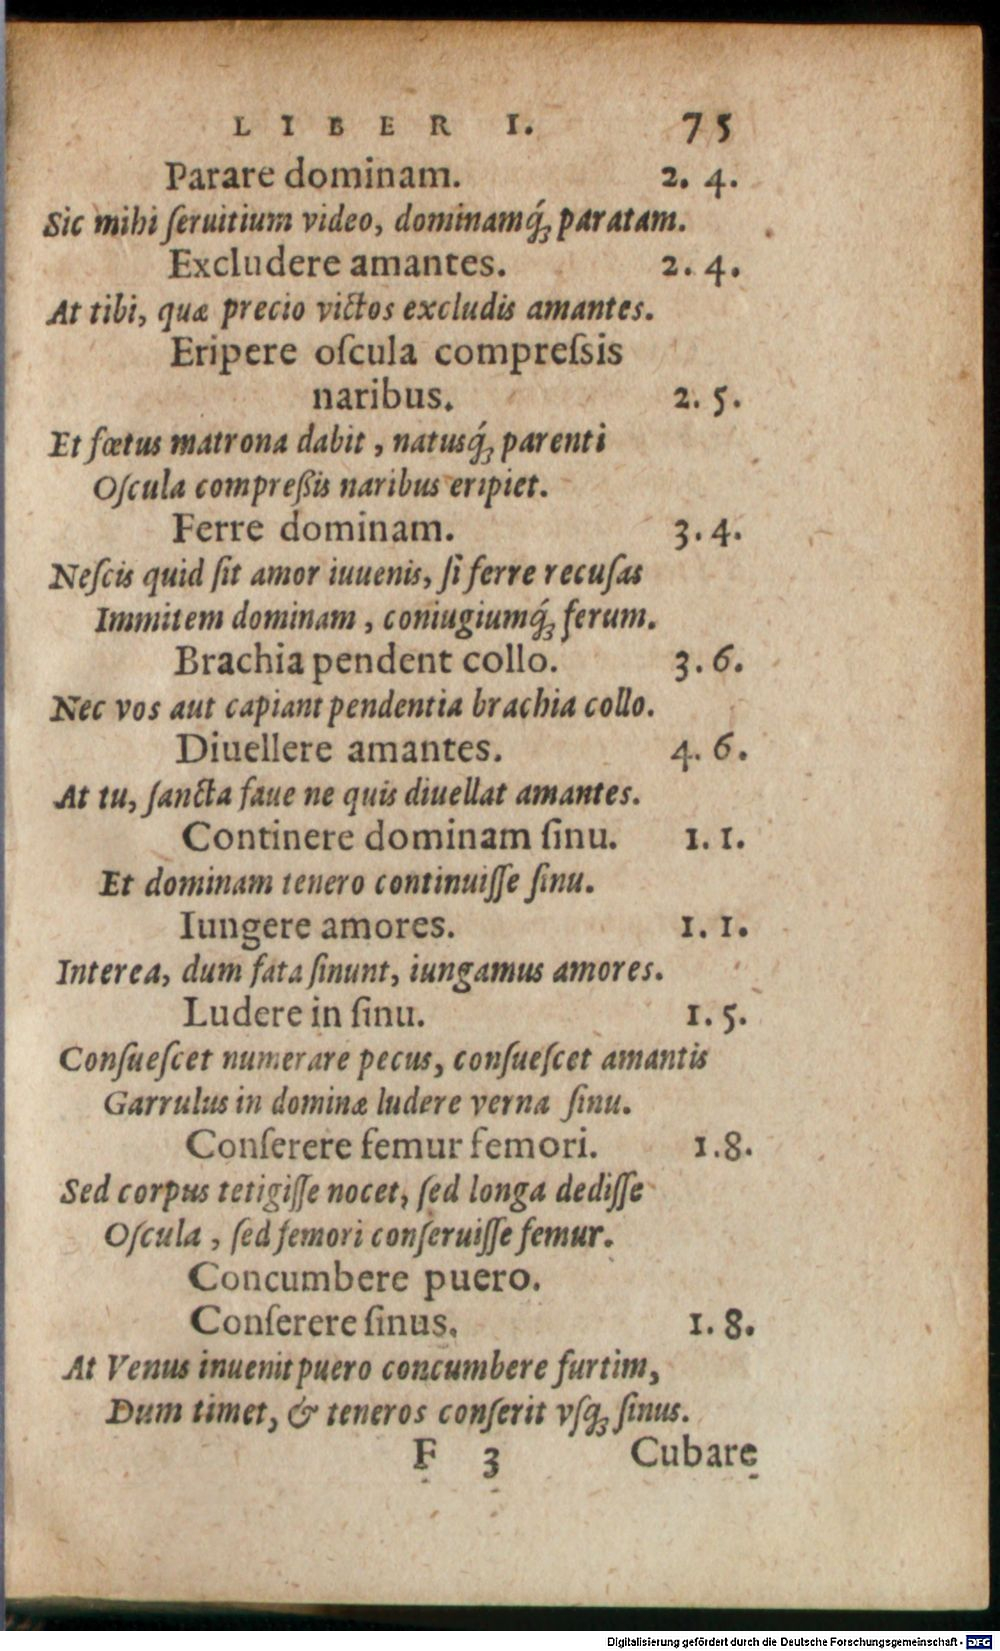 LIBER I. 75
Parare dominam. 2. 4.
Sic mihi ſeruitium video, dominamq́ꝫ paratam.
Excludere amantes. 2. 4.
At tibi, quæ precio victos excludis amantes.
Eripere oſcula compreſsis
naribus. 2. 5.
Et fœtus matrona dabit, natusq́ꝫ parenti
Oſcula compreßis naribus eripiet.
Ferre dominam. 3. 4.
Neſcis quid ſit amor iuuenis, ſi ferre recuſas
Immitem dominam, coniugiumq́ꝫ ferum.
Brachia pendent collo. 3. 6.
Nec vos aut capiant pendentia brachia collo.
Diuellere amantes. 4. 6.
At tu, ſancta faue ne quis diuellat amantes.
Continere dominam ſinu. 1. 1.
Et dominam tenero continuiſſe ſinu.
Iungere amores. 1. 1.
Interea, dum fata ſinunt, iungamus amores.
Ludere in ſinu. 1. 5.
Conſueſcet numerare pecus, conſueſcet amantis
Garrulus in dominæ ludere verna ſinu.
Conſerere femur femori. 1. 8.
Sed corpus tetigiſſe nocet, ſed longa dediſſe
Oſcula, ſed femori conſeruiſſe femur.
Concumbere puero.
Conſerere ſinus. 1. 8.
At Venus inuenit puero concumbere furtim,
Dum timet, & teneros conſerit vſqꝫ ſinus.
F 3 Cubare
Digitalisierung gefördert durch die Deutsche Forschungsgemeinschaft - DFG